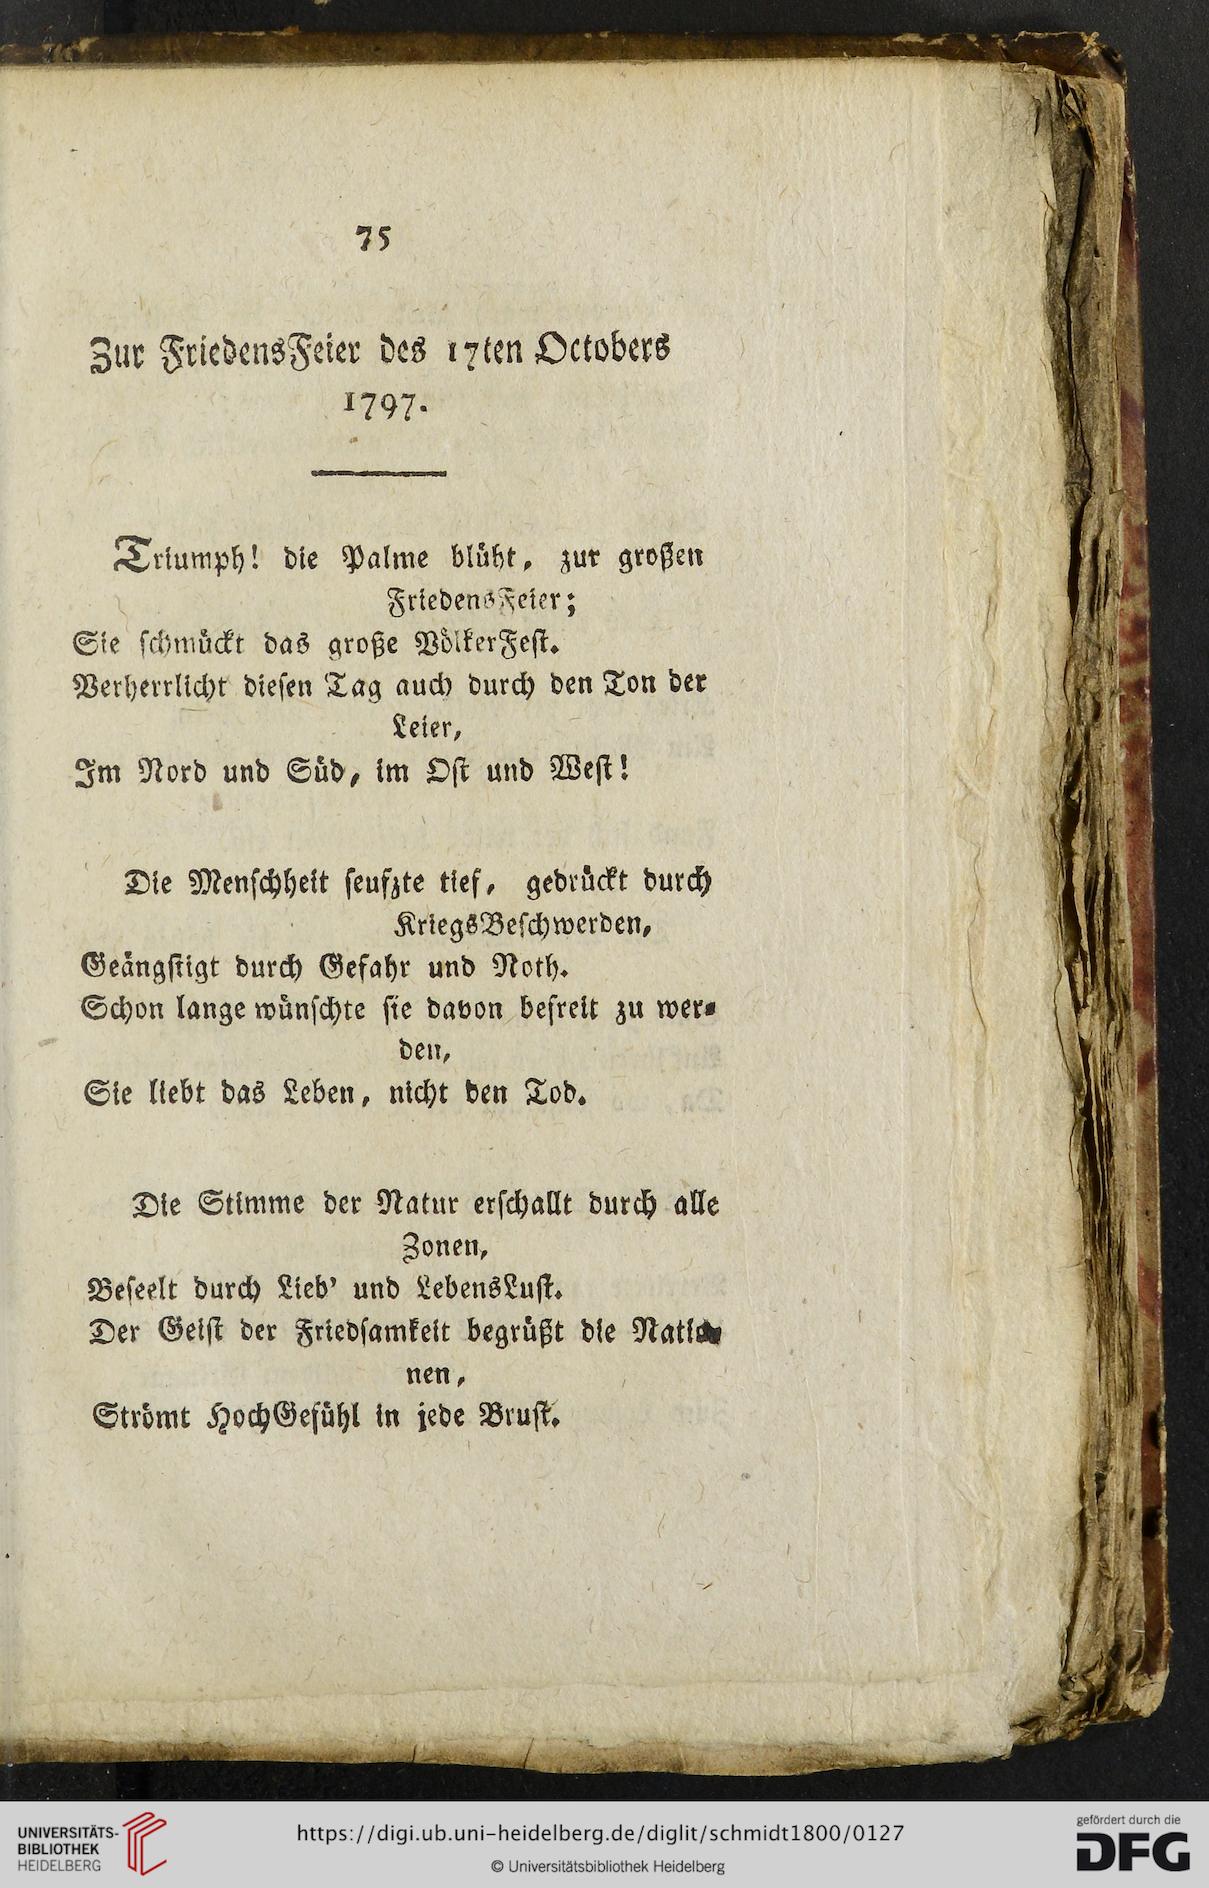 75
Zur FriedensFeier des 17ten Octobers
1797.
Triumph! die Palme blüht, zur großen
FriedensFeier;
Sie schmückt das große VölkerFest.
Verherrlicht diesen Tag auch durch den Ton der
Leier,
Im Nord und Süd, im Ost und West!
Die Menschheit seufzte tief, gedrückt durch
KriegsBeschwerden,
Geängstigt durch Gefahr und Noth.
Schon lange wünschte sie davon befreit zu wer-
den,
Sie liebt das Leben, nicht den Tod.
Die Stimme der Natur erschallt durch alle
Zonen,
Beseelt durch Lieb' und LebensLust.
Der Geist der Friedsamkeit begrüßt die Natio-
nen,
Strömt HochGefühl in jede Brust.
UNIVERSITÄTS-
BIBLIOTHEK
HEIDELBERG
https://digi.ub.uni-heidelberg.de/diglit/schmidt1800/0127
© Universitätsbibliothek Heidelberg
gefördert durch die
DFG